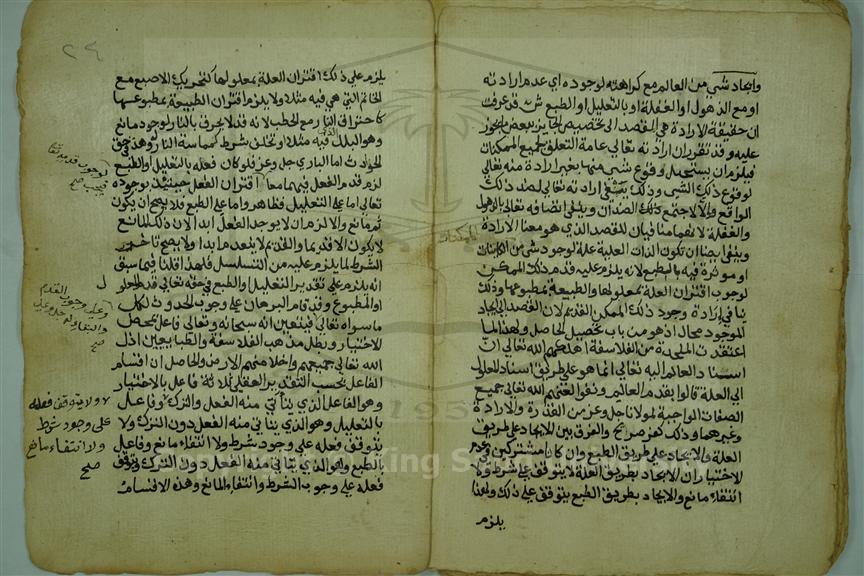 وايجاد شي من العالم مع كراهته لوجوده اي عدم ارادته
او مع الذهول او الغفلة او بالتعليل او الطبع ش قد عرفت
ان حقيقة الارادة هي القصد الى تخصيص الجايز ببعض ما يجوز
عليه وقد تقرر ان ارادته تعالى عامة التعلق لجميع الممكنات
فيلزم ان يستحيل وقوع شي منها بغير ارادة منه تعالى
لوقوع ذلك الشي وذلك ينفي ارادته تعالى لضد ذلك
الواقع والا لاجتمع ذلك الضدان وينفي اتصافه تعالى بالذهول
والغفلة لانهما منافيان للقصد الذي هو معنا الارادة
وينفي ايضا ان تكون الذات العلية علة لوجود شي من الكاينات
او موثرة فيه بالطبع لانه يلزم عليه قدم ذلك الممكن
لوجوب اقتران العلة بمعلولها والطبيعة بمطبوعها وذلك
ينافي ارادة وجود ذلك الممكن القديم لان القصد الى ايجاد
الموجود محال اذ هو من باب تحصيل الحاصل ولهذا لما
اعتقدت الملحدة من الفلاسفة اهلكهم الله تعالى ان
اسناد العالم اليه تعالى انما هو على طريق اسناد المعلول
الى العلة قالوا بقدم العالم ونفوا لعنهم الله تعالى جميع
الصفات الواجبة لمولانا جل وعز من القدرة والارادة
وغيرهما وذلك كفر صريح والفرق بين الايجاد على طريق
العلة والايجاد على طريق الطبع وان كانا مشتركين في عدم
الاختيار ان الايجاد بطريق العلة لا يتوقف على شرط ولا
انتفاء مانع والايجاد بطريق الطبع يتوقف على ذلك ولهذا
يلزم
الممكنات
٢٤
يلزم على ذلك اقتران العلة بمعلولها كتحريك الاصبع مع
الخاتم التي هي فيه مثلا ولا يلزم اقتران الطبيعة بمطبوعها
كاحتراق النار مع الحطب لانه قد لا يحرق بالنار لوجود مانع
وهو البلل فيه مثلا او تخلف شرط كمماسة النار وهذا في حق
الحوادث اما الباري جل وعز فلو كان فعله بالتعليل او الطبع
لزم قدم الفعل فيهما معا اقتران الفعل حينئذ بوجوده
تعالى اما على التعليل فظاهر واما على الطبع فلا يصح ان يكون
ثم مانع والا لزم ان لا يوجد الفعل ابدا لان ذلك المانع
لا يكون الا قديما والقديم لا ينعدم ابدا ولا يصح تاخير
الشرط لما يلزم عليه من التسلسل فلهذا قلنا فيما سبق
انه يلزم على تقدير التعليل والطبع في حقه تعالى قدم المعلول
او المطبوع وقد قام البرهان على وجوب الحدوث لكل
ما سواه تعالى فيتعين انه سبحانه وتعالى فاعل بمحض
الاختيار وبطل مذهب الفلاسفة والطبايعيين اذل
الله تعالى جميعهم واخلا منهم الارض والحاصل ان اقسام
الفاعل بحسب التقدير العقلي ثلاثة فاعل بالاختيار
وهو الفاعل الذي يتاتى منه الفعل والترك وفاعل
بالتعليل وهو الذي يتاتى منه الفعل دون الترك ولا
يتوقف فعله على وجود شرط ولا انتفاء مانع وفاعل
بالطبع وهو الذي يتاتى منه الفعل دون الترك ويتوقف
فعله على وجوب الشرط وانتفاء المانع وهذه الاقسام
لوجوب قدمه تعالى
صح
صح
ولا يتوقف فعله
على وجود شرط
ولا انتفاء مانع
صح